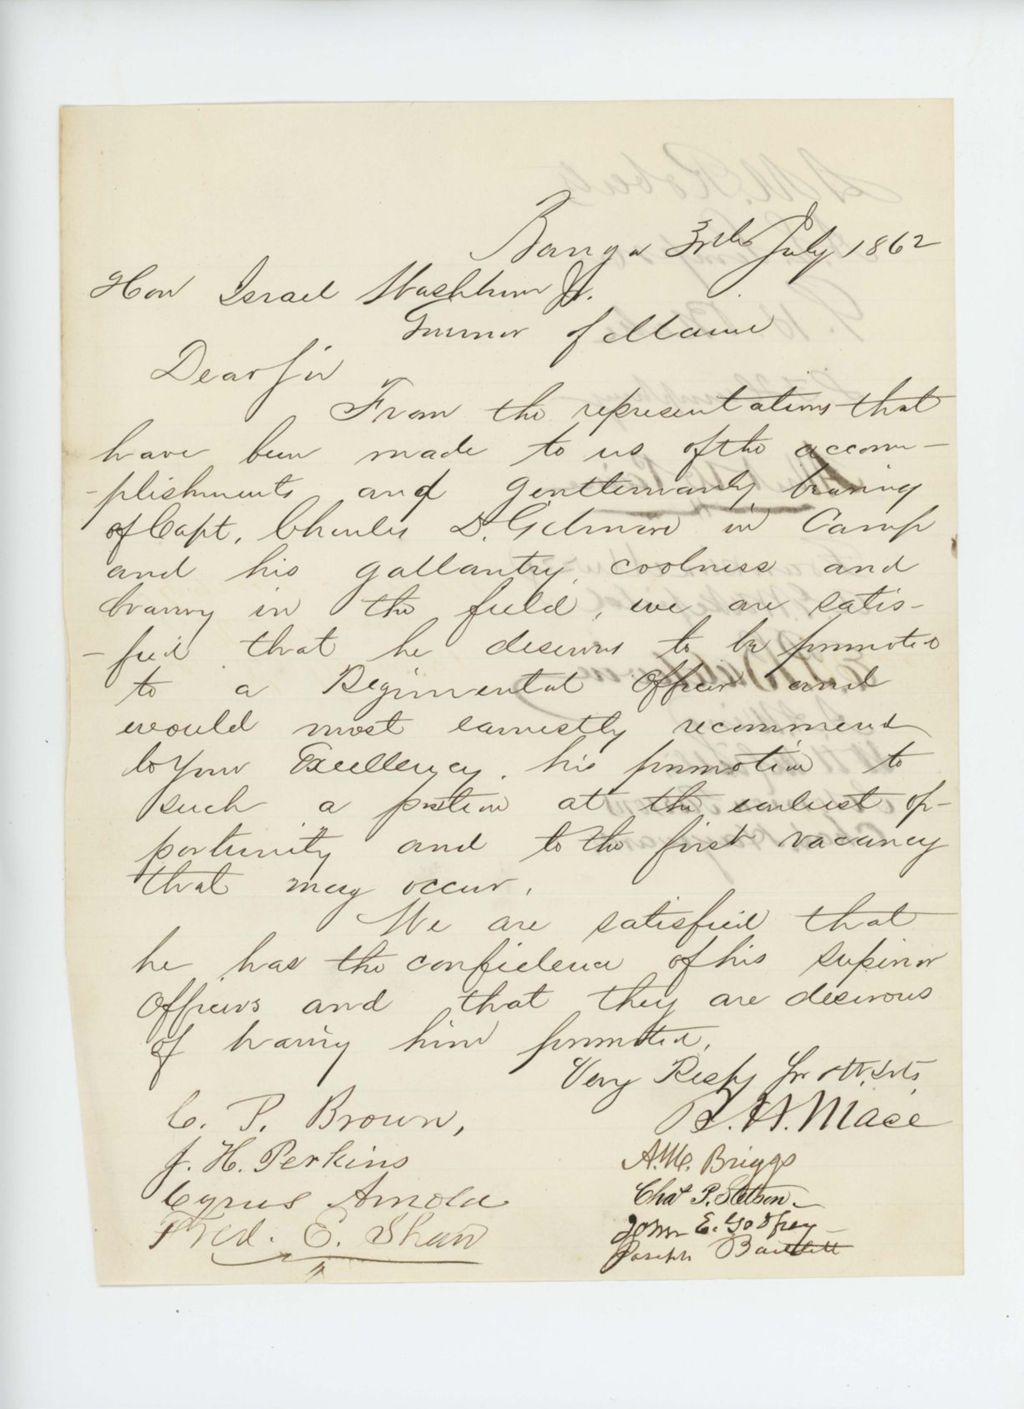 Bangor 3rd July 1862
Hon Israel Washburn Jr.
Governor of Maine
Dear Sir
From the representations that
have been made to us of the accom-
-plishments and gentlemanly bearing
of Capt. Charles D. Gilmore in Camp
and his gallantry, coolness and
bravery in the field, we are satis-
-fied that he deserves to be promoted
to a Regimental Officer and
would most earnestly recommend
to Your Excellency, his promotion to
such a position at the earliest op-
portunity and to the first vacancy
that may occur.
We are satisfied that
he has the confidence of his superior
Officers and that they are desirous
of having him promoted.
Very Respy Yr Obt Svts
C. P. Brown,
J. H. Perkins
Cyrus Arnold
Fred. E. Shaw
B. H. Mace
A. W. Briggs
Chas P. Stetson
John E. Godfrey
Joseph Bartlett